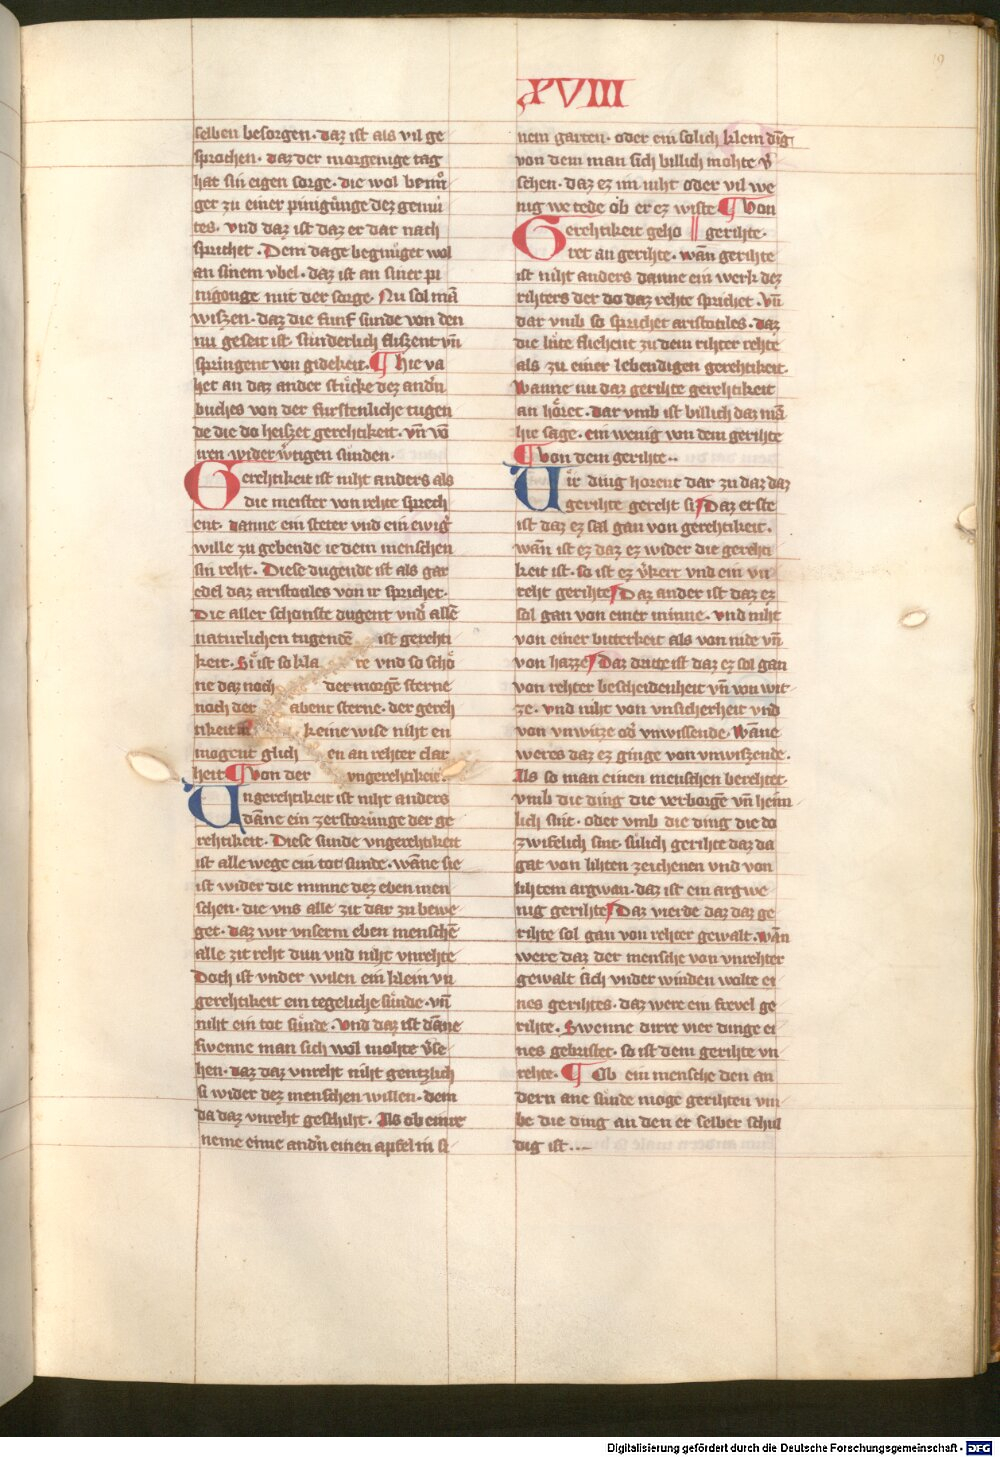 XVIII
19
selben besorgen· daz ist als vil ge
sprochen· daz der morgenige tag
hat sin eigen sorge· die wol benuͦ
get zu einer pinigunge dez gemuͤ
tes· vnd daz ist daz er dar nach
sprichet· Dem dage begnuͦget wol
an sinem vbel· daz ist an siner pi
nigonge mit der sorge· Nu sol mā
wiszen· daz die funf sunde von den
nu geseit ist· sunderlich fliszent vn̄
springent von gidekeit· ¶ hie va
het an daz ander stuͤcke dez andn̄
buches von der furstenliche tugen
de die do heiszet gerehtikeit· vn̄ vō
iren wider wͦtigen sunden·
Gerehtikeit ist niht anders als
die meister von rehte sprech
ent· danne ein steter vnd ein ewig̉
wille zu gebende ie dem menschen
sin reht· Diese dugende ist als gar
edel daz aristotiles von ir sprichet·
Die aller schonste dugent vnd̉ allē
naturlichen tugendē ist gerehti
keit· Si ist so kla re vnd so schoͤ
ne daz noch der morgē sterne
noch der abent sterne· der gereh
tikeit in keine wise niht en
mogent glich en an rehter clar
heit ¶ von der vngerehtikeit·
Ungerehtikeit ist niht anders
dāne ein zerstorunge der ge
rehtikeit· Diese sunde vngerehtikeit
ist alle wege ein tot sunde· wāne sie
ist wider die minne dez eben men
schen· die vns alle zit dar zu bewe
get· daz wir vnserm eben menschē
alle zit reht dun vnd niht vnrehte
Doch ist vnder wilen ein klein vn
gerehtikeit ein tegeliche suͤnde· vn̄
niht ein tot suͤnde· vnd daz ist dāne
swenne man sich wol mohte v̉se
hen· daz daz vnreht niht gentzlich
si wider dez menschen willen· dem
da daz vnreht geschiht· Als ob einre
neme eime andn̄ einen apfel in si
nem garten· oder ein solich klein ding
von dem man sich billich mohte v̉
sehen· daz ez im niht oder vil we
nig we tede ob er ez wiste ¶ von
Gerehtikeit geho ‖ gerihte·
ret an gerihte· wān gerihte
ist niht anders danne ein werk dez
rihters der do daz rehte sprichet· vn̄
dar vmb so sprichet aristotiles· daz
die lute fliehent zu dem rihter rehte
als zu einer lebendigen gerehtikeit·
Wanne nu daz gerihte gerehtikeit
an hoͤret· dar vmb ist billich daz mā
hie sage· ein wenig von dem gerihte
¶ von dem gerihte··
Uir ding horent dar zu daz daz
gerihte gereht si· Daz erste
ist daz ez sal gan von gerehtikeit·
wān ist ez daz ez wider die gerehti
keit ist· so ist ez v̉kert vnd ein vn
reht gerihte· Daz ander ist daz ez
sol gan von einer minne· vnd niht
von einer bitterkeit als von nide vn̄
von hazze· Daz dritte ist daz ez sol gan
von rehter bescheidenheit vn̄ von wit
ze· vnd niht von vnsicherheit vnd
von vnwitze od̉ vnwissende· Wāne
weres daz ez ginge von vnwiszende·
Als so man einen menschen berehtet·
vmb die ding die verborgē vn̄ heim
lich sint· oder vmb die ding die do
zwifelich sint· sulich gerihte daz da
gat von lihten zeichenen vnd von
lihtem argwan· daz ist ein argwe
nig gerihte· Daz vierde daz daz ge
rihte sol gan von rehter gewalt· wān
were daz der mensche von vnrehter
gewalt sich vnder winden wolte ei
nes gerihtes· daz were ein frevel ge
rihte· Swenne dirre vier dinge ei
nes gebristet· so ist dem gerihte vn
rehte· ¶ Ob ein mensche den an
dern ane sunde moge gerihten vm
be die ding an den er selber schul
dig ist·—
Digitalisierung gefördert durch die Deutsche Forschungsgemeinschaft - DFG